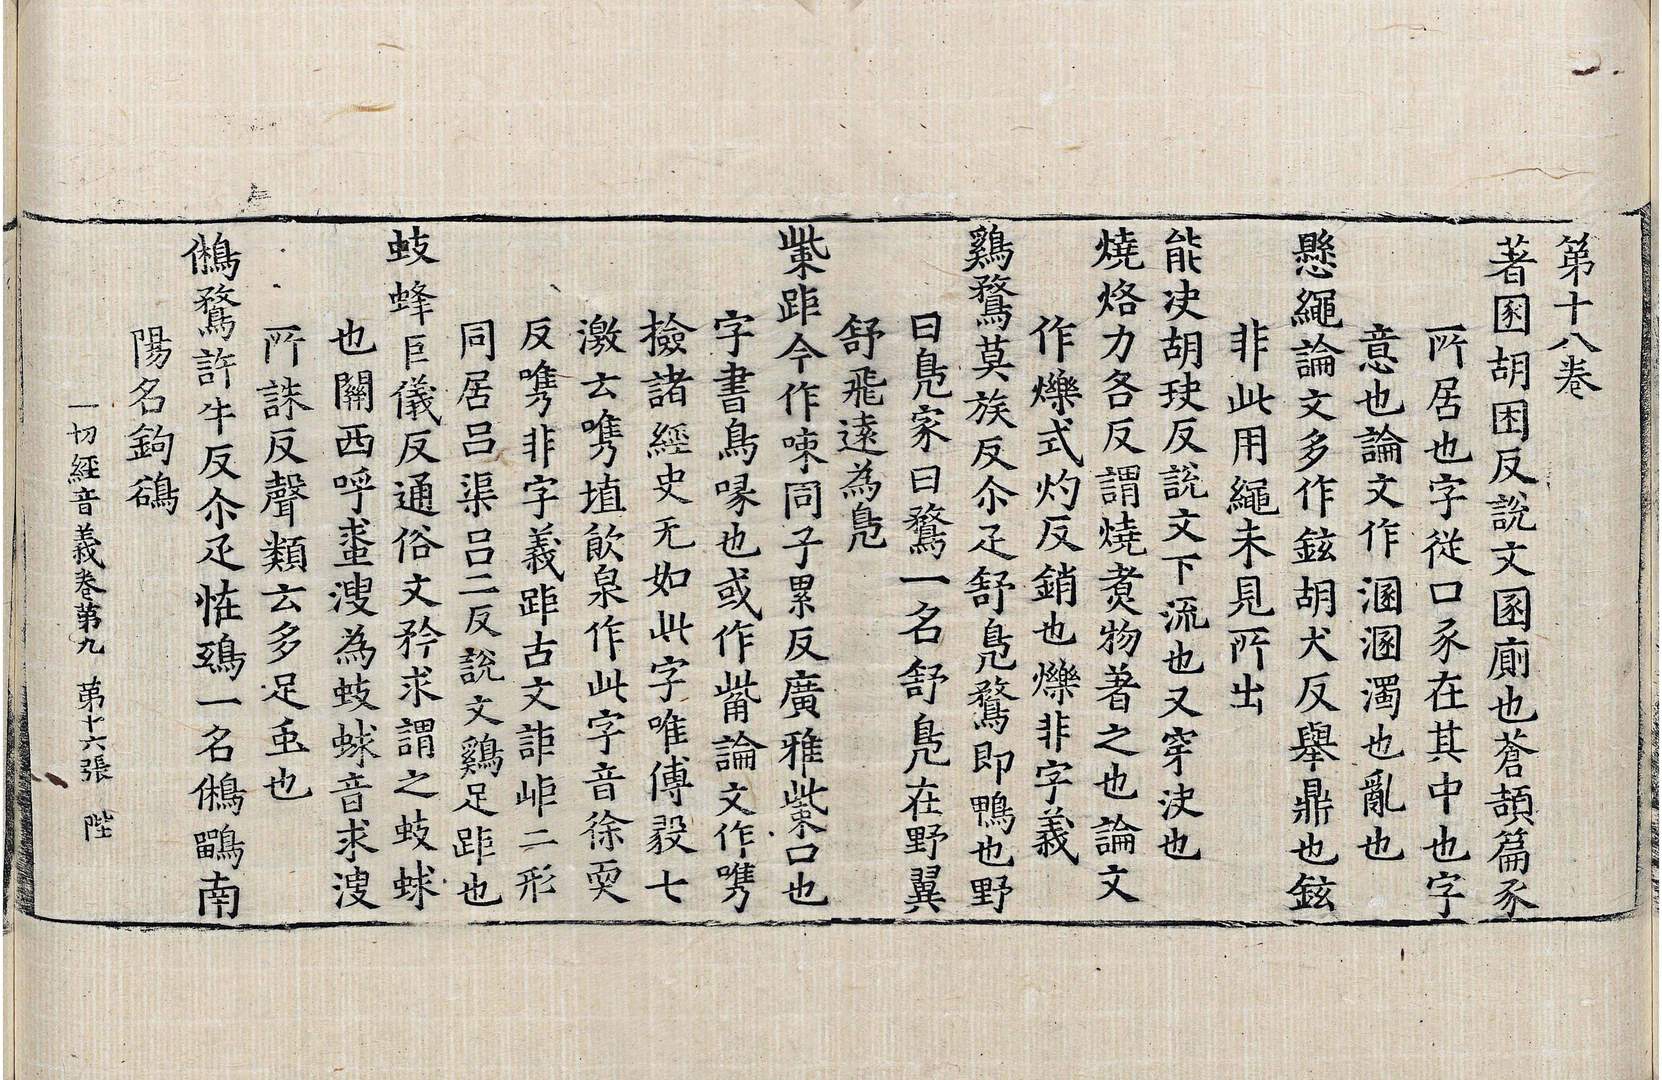 第十八卷
著圂胡困反説文圂廁也蒼頡篇豕
所居也字從口豕在其中也字
意也論文作溷溷濁也亂也
懸繩論文多作鉉胡犬反舉鼎也鉉
非此用繩未見所出
能决胡玦反説文下流也又穿决也
燒烙力各反謂燒煑物著之也論文
作爍式灼反銷也爍非字義
鷄鶩莫族反尒疋舒鳧鶩即鴨也野
曰鳧家曰鶩一名舒鳧在野翼
舒飛遠為鳧
觜距今作㖩同子累反廣雅觜口也
字書鳥喙也或作觜論文作㗱
撿諸經史无如此字唯傅毅七
激云㗱埴飲泉作此字音徐耎
反㗱非字義距古文詎岠二形
同居吕渠吕二反説文鷄足距也
蚑蜂巨儀反通俗文矜求謂之蚑蛷
也關西呼𧐅溲為蚑蛷音求溲
所誅反聲類云多足䖝也
鵂鶩許牛反尒疋恠鵄一名鵂鶹南
陽名鉤鵅
一切經音義卷第九　第十六張　陛